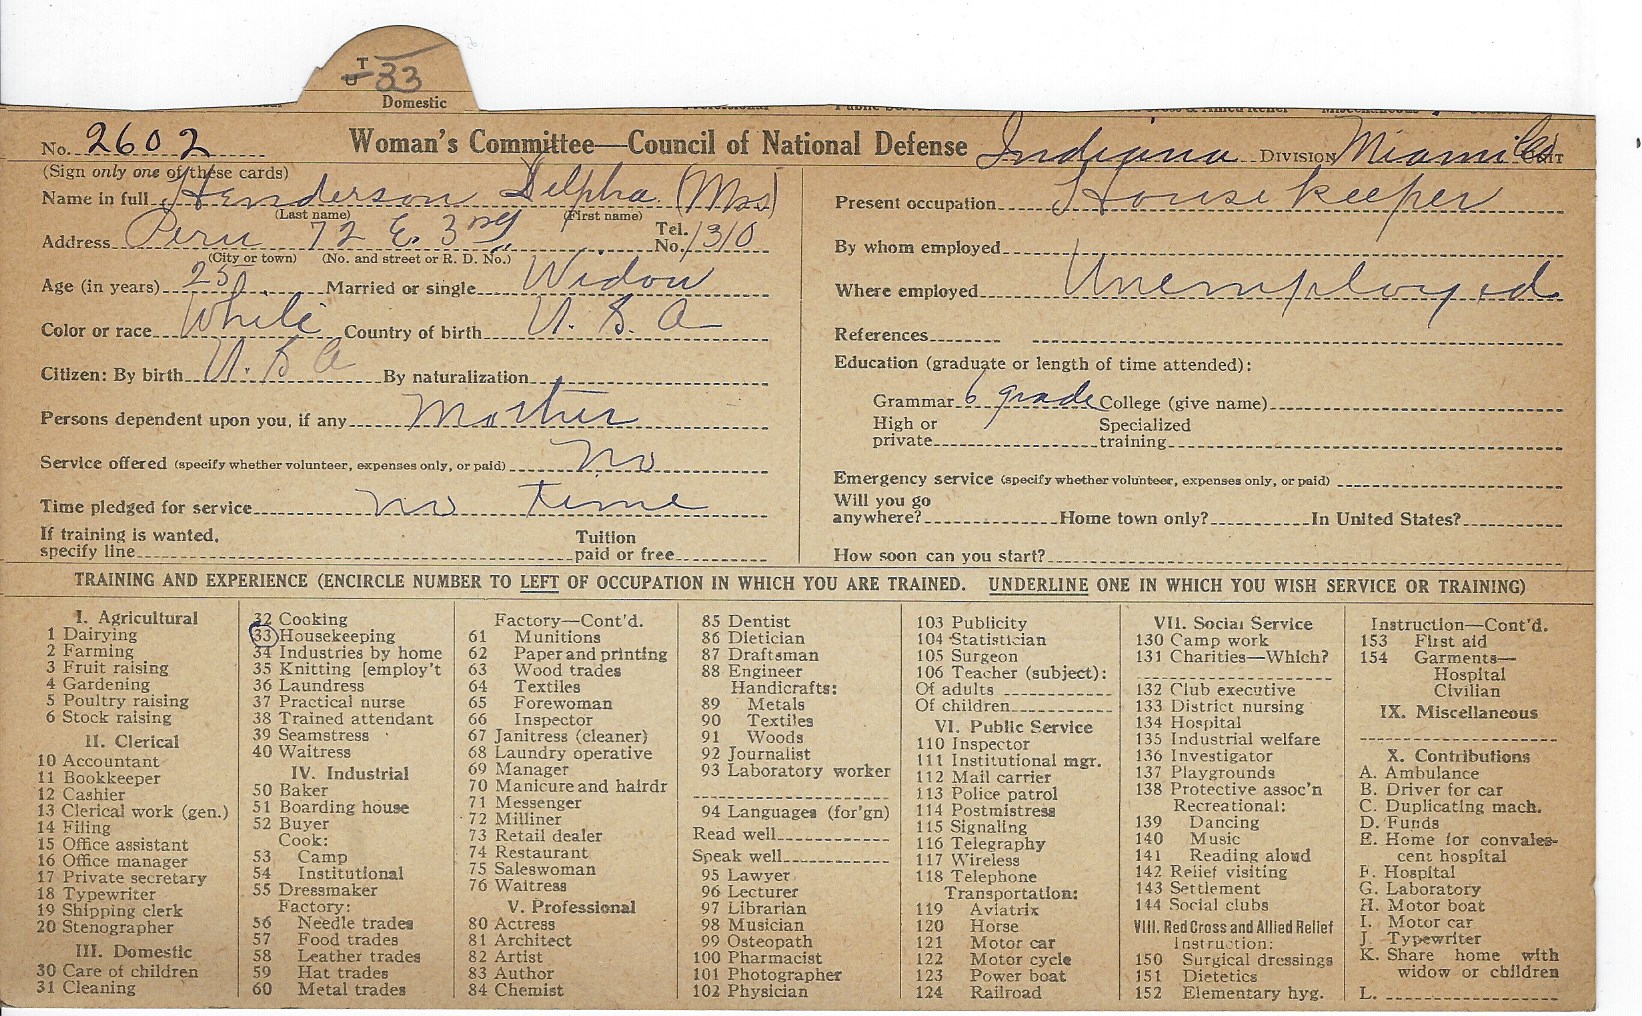 T
U 33
Domestic
No. 2602 Woman's Committee—Council of National Defense Indiana DIVISION Miami Co. UNIT
(Sign only one of these cards)
Name in full Henderson Delpha (Mrs)
(Last name) (First name)
Address Peru 72 E. 3rd Tel. No. 1310
(City or town) (No. and street or R. D. No.)
Age (in years) 25 Married or single Widow
Color or race White Country of birth U. S. A
Citizen: By birth U. S. A By naturalization
Persons dependent upon you, if any Mother
Service offered (specify whether volunteer, expenses only, or paid) No
Time pledged for service no time
If training is wanted, specify line Tuition paid or free
Present occupation Housekeeper
By whom employed
Where employed Unemployed
References
Education (graduate or length of time attended):
Grammar 6 grade College (give name)
High or private Specialized training
Emergency service (specify whether volunteer, expenses only, or paid)
Will you go anywhere? Home town only? In United States?
How soon can you start?
TRAINING AND EXPERIENCE (ENCIRCLE NUMBER TO LEFT OF OCCUPATION IN WHICH YOU ARE TRAINED. UNDERLINE ONE IN WHICH YOU WISH SERVICE OR TRAINING)
I. Agricultural
1 Dairying
2 Farming
3 Fruit raising
4 Gardening
5 Poultry raising
6 Stock raising
II. Clerical
10 Accountant
11 Bookkeeper
12 Cashier
13 Clerical work (gen.)
14 Filing
15 Office assistant
16 Office manager
17 Private secretary
18 Typewriter
19 Shipping clerk
20 Stenographer
III. Domestic
30 Care of children
31 Cleaning
32 Cooking
33 Housekeeping
34 Industries by home
35 Knitting [employ't
36 Laundress
37 Practical nurse
38 Trained attendant
39 Seamstress
40 Waitress
IV. Industrial
50 Baker
51 Boarding house
52 Buyer
Cook:
53 Camp
54 Institutional
55 Dressmaker
Factory:
56 Needle trades
57 Food trades
58 Leather trades
59 Hat trades
60 Metal trades
Factory—Cont'd.
61 Munitions
62 Paper and printing
63 Wood trades
64 Textiles
65 Forewoman
66 Inspector
67 Janitress (cleaner)
68 Laundry operative
69 Manager
70 Manicure and hairdr
71 Messenger
72 Milliner
73 Retail dealer
74 Restaurant
75 Saleswoman
76 Waitress
V. Professional
80 Actress
81 Architect
82 Artist
83 Author
84 Chemist
85 Dentist
86 Dietician
87 Draftsman
88 Engineer
Handicrafts:
89 Metals
90 Textiles
91 Woods
92 Journalist
93 Laboratory worker
94 Languages (for'gn)
Read well
Speak well
95 Lawyer
96 Lecturer
97 Librarian
98 Musician
99 Osteopath
100 Pharmacist
101 Photographer
102 Physician
103 Publicity
104 Statistician
105 Surgeon
106 Teacher (subject):
Of adults
Of children
VI. Public Service
110 Inspector
111 Institutional mgr.
112 Mail carrier
113 Police patrol
114 Postmistress
115 Signaling
116 Telegraphy
117 Wireless
118 Telephone
Transportation:
119 Aviatrix
120 Horse
121 Motor car
122 Motor cycle
123 Power boat
124 Railroad
VII. Social Service
130 Camp work
131 Charities—Which?
132 Club executive
133 District nursing
134 Hospital
135 Industrial welfare
136 Investigator
137 Playgrounds
138 Protective assoc'n
Recreational:
139 Dancing
140 Music
141 Reading aloud
142 Relief visiting
143 Settlement
144 Social clubs
VIII. Red Cross and Allied Relief
Instruction:
150 Surgical dressings
151 Dietetics
152 Elementary hyg.
Instruction—Cont'd.
153 First aid
154 Garments—
Hospital
Civilian
IX. Miscellaneous
X. Contributions
A. Ambulance
B. Driver for car
C. Duplicating mach.
D. Funds
E. Home for convales-
cent hospital
F. Hospital
G. Laboratory
H. Motor boat
I. Motor car
J. Typewriter
K. Share home with
widow or children
L.